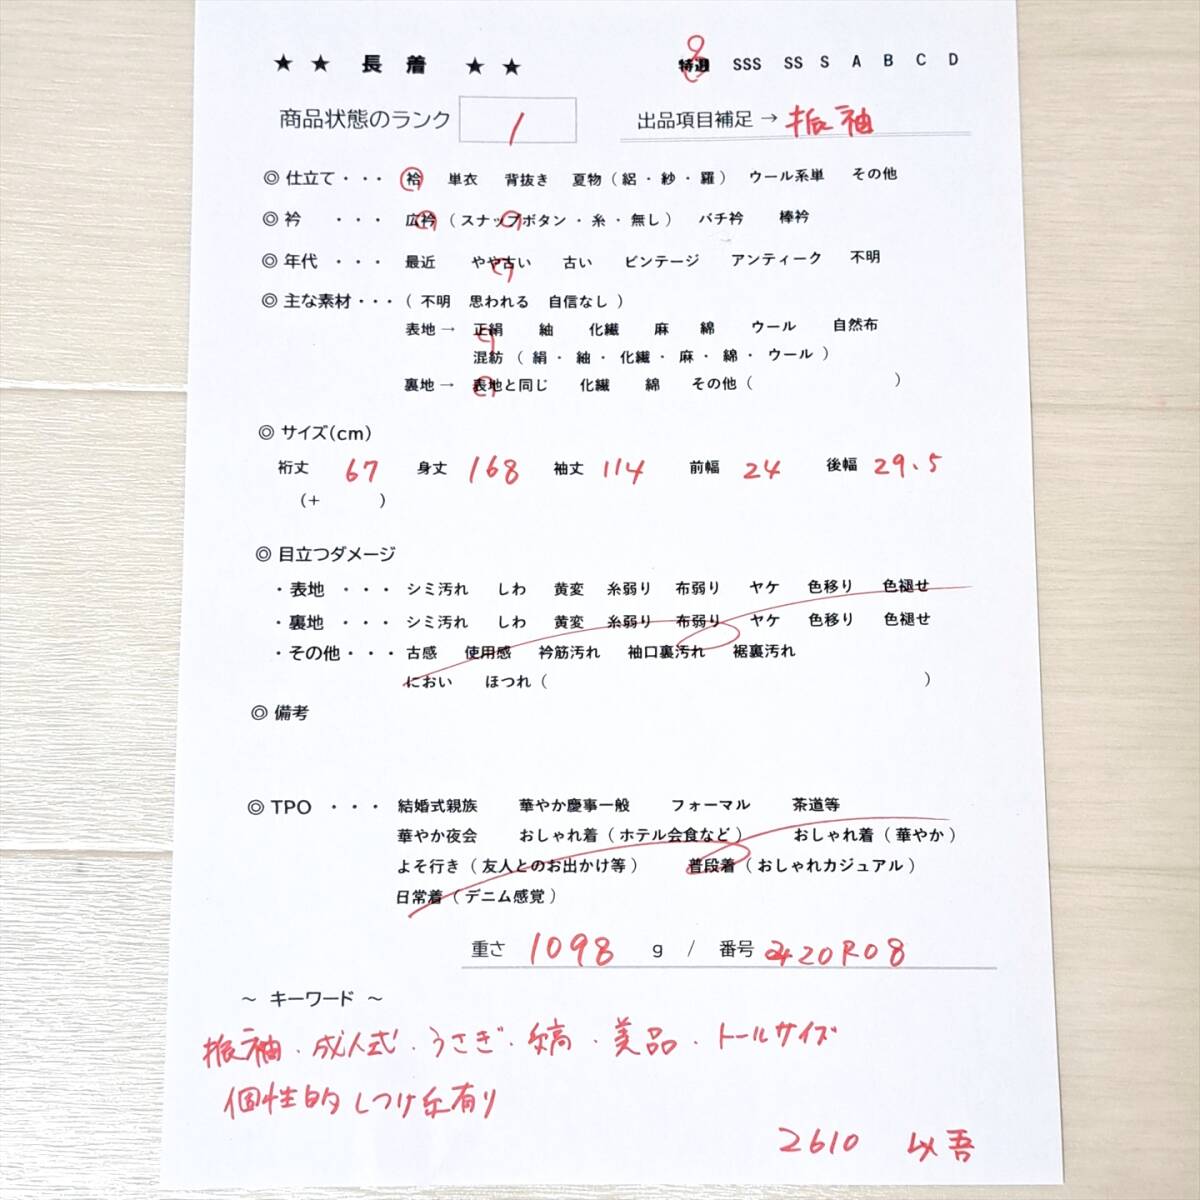 ★ ★ 長 着 ★ ★ 特選 SSS SS S A B C D
商品状態のランク 1 出品項目補足 → 振袖
◎ 仕立て・・・ 袷 単衣 背抜き 夏物(絽・紗・羅) ウール系単 その他
◎ 衿 ・・・ 広衿(スナップボタン・糸・無し) バチ衿 棒衿
◎ 年代 ・・・ 最近 やや古い 古い ビンテージ アンティーク 不明
◎ 主な素材・・・( 不明 思われる 自信なし )
表地→ 正絹 紬 化繊 麻 綿 ウール 自然布
混紡( 絹・紬・化繊・麻・綿・ウール )
裏地→ 表地と同じ 化繊 綿 その他( )
◎ サイズ(cm)
裄丈 67 身丈 168 袖丈 114 前幅 24 後幅 29.5
(+ )
◎ 目立つダメージ
・表地 ・・・ シミ汚れ しわ 黄変 糸弱り 布弱り ヤケ 色移り 色褪せ
・裏地 ・・・ シミ汚れ しわ 黄変 糸弱り 布弱り ヤケ 色移り 色褪せ
・その他・・・ 古感 使用感 衿筋汚れ 袖口裏汚れ 裾裏汚れ
におい ほつれ( )
◎ 備考
◎ TPO ・・・ 結婚式親族 華やか慶事一般 フォーマル 茶道等
華やか夜会 おしゃれ着(ホテル会食など) おしゃれ着(華やか)
よそ行き(友人とのお出かけ等) 普段着(おしゃれカジュアル)
日常着(デニム感覚)
重さ 1098 g / 番号 2420R08
～ キーワード ～
振袖・成人式・うさぎ・縞・美品・トールサイズ
個性的 しつけ糸有り
2610